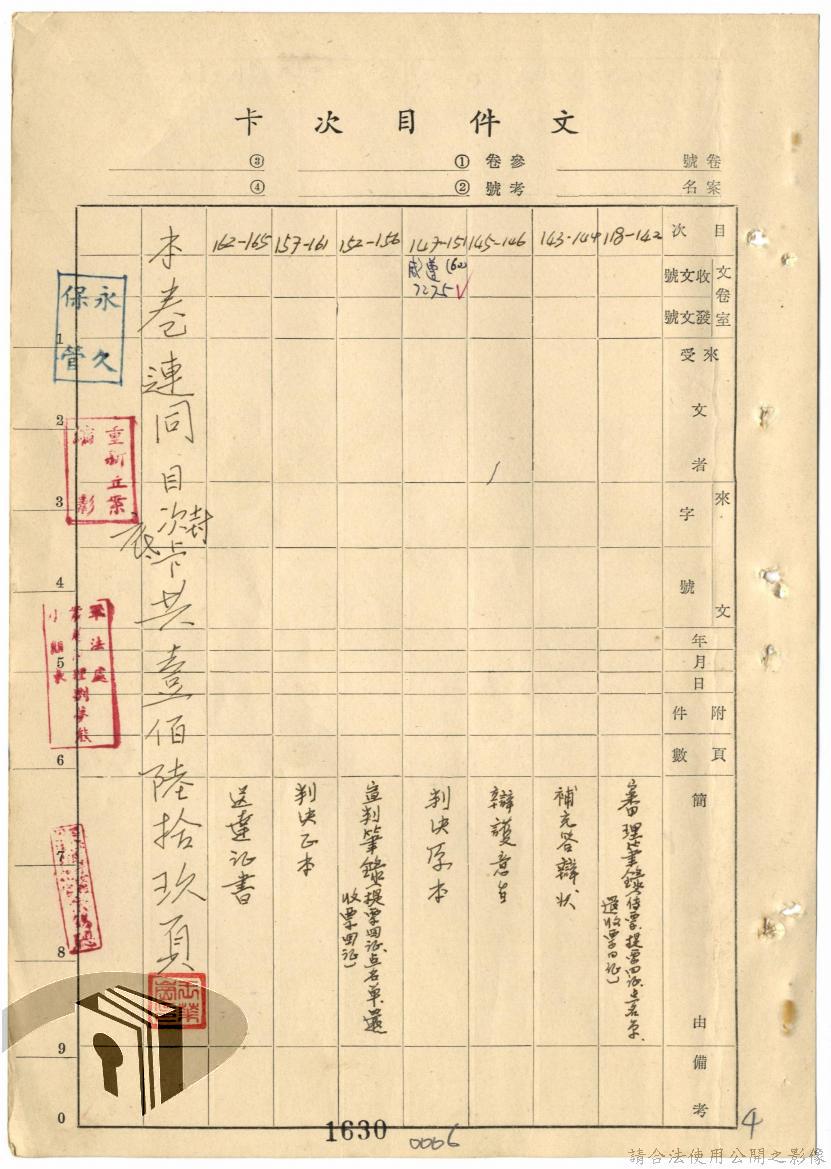 文件目次卡
卷號
案名
參考卷號
①
②
③
④
目次
文卷室
收文號
發文號
來受文者
來文
字號
年月日
附件
頁數
簡由
備考
118-142
審理筆錄(傳票、提票回證、点名單、還收票回证)
143-144
補充答辯狀
145-146
辯護意旨
147-151
(62)
7275
判決原本
152-156
宣判筆錄(提票回証点名單還收票回证)
157-161
判决正本
162-165
送達证書
本卷連同目次卡封底共壹佰陸拾玖頁
永久保管
重新立案
編彰
軍法處
1
2
3
4
5
6
7
8
9
0
1630
0006
4
請合法使用公開之影像